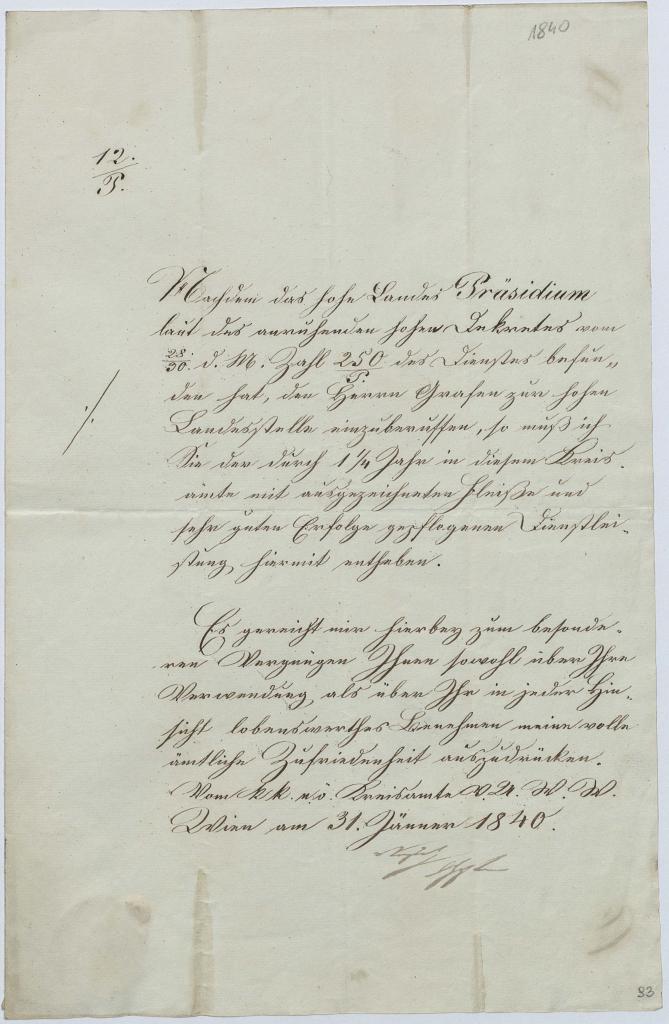 1840
12.
P.
Nachdem das hohe Landes Präsidium
laut des anruhenden hohen Dekretes vom
28/30. d. M. Zahl 250/P. des Dienstes befun„
den hat, den Herrn Grafen zur hohen
Landesstelle einzuberuffen, so muß ich
Sie der durch 1 1/4 Jahr in diesem Kreis„
amte mit ausgezeichneten Fleiße und
sehr guten Erfolge gepflogenen Dienstlei„
stung hiermit entheben.
Es gereicht mir hierbey zum besonde„
ren Vergnügen Ihnen sowohl über Ihre
Verwendung als über Ihr in jeder Hin„
sicht lobenswerthes Benehmen meine volle
ämtliche Zufriedenheit auszudrücken.
Vom k k. n. ö. Kreisamte V. U. W. W.
Wien am 31. Jänner 1840.
93